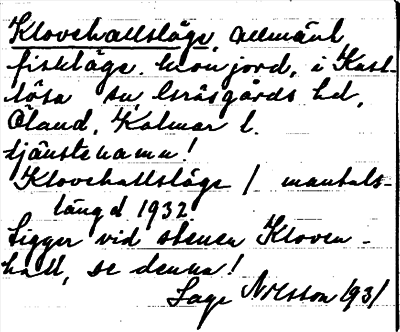 Klovehallsläge, allmänt
fiskläge. kronjord, i Kast-
lösa sn, Gräsgårds hd,
Öland, Kalmar l.
tjänstenamn!
Klovehallsläge / mantals-
längd 1932
Ligger vid stenen Kloven-
hall, se denna!
Sage Nilsson 1931